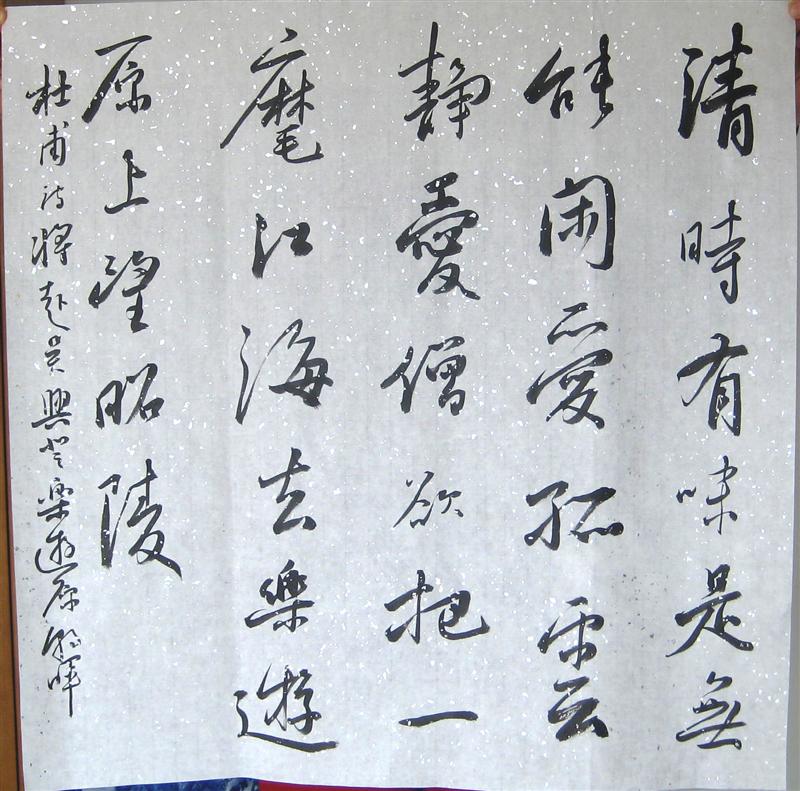 清時有味是無
能閑愛孤雲
静愛僧欲把一
麾江海去樂遊
原上望昭陵
杜甫詩將赴吴興登樂遊原